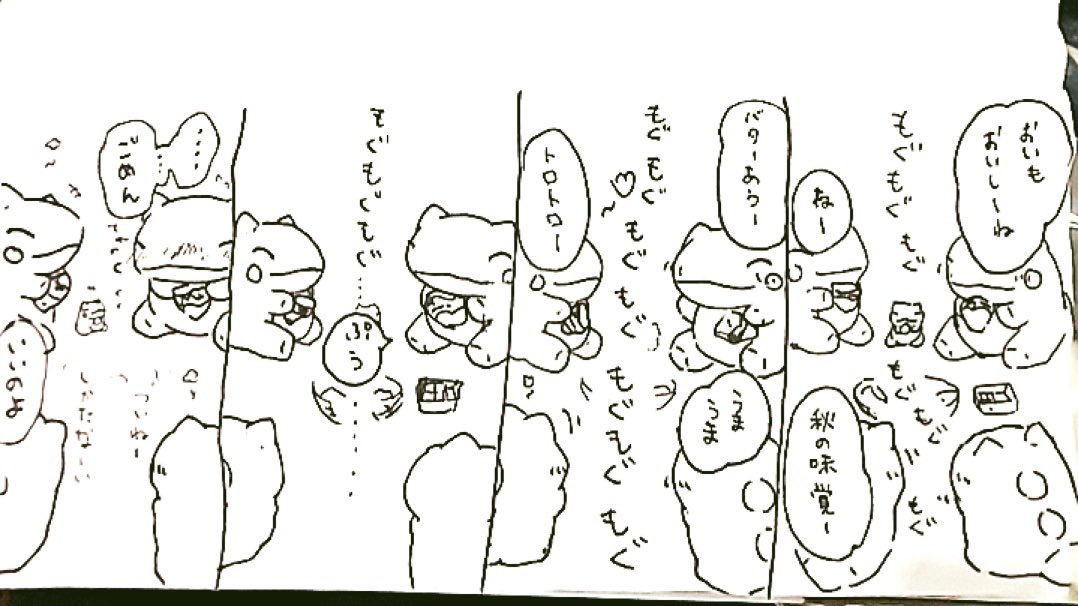 おいも
おいし〜ね
もぐもぐもぐ
もぐもぐもぐ
ねー
秋の味覚ー
バターあうー
うま
うま
もぐもぐ
もぐもぐ
もぐもぐもぐ
トロトロー
もぐもぐもぐ……
ぷぅ
‥‥
ごめん
ついねー
しかたなーい
いいのよ